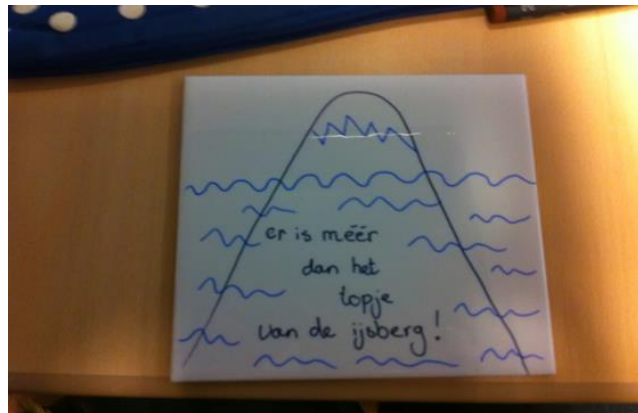 er is méér
dan het
topje
van de ijsberg!